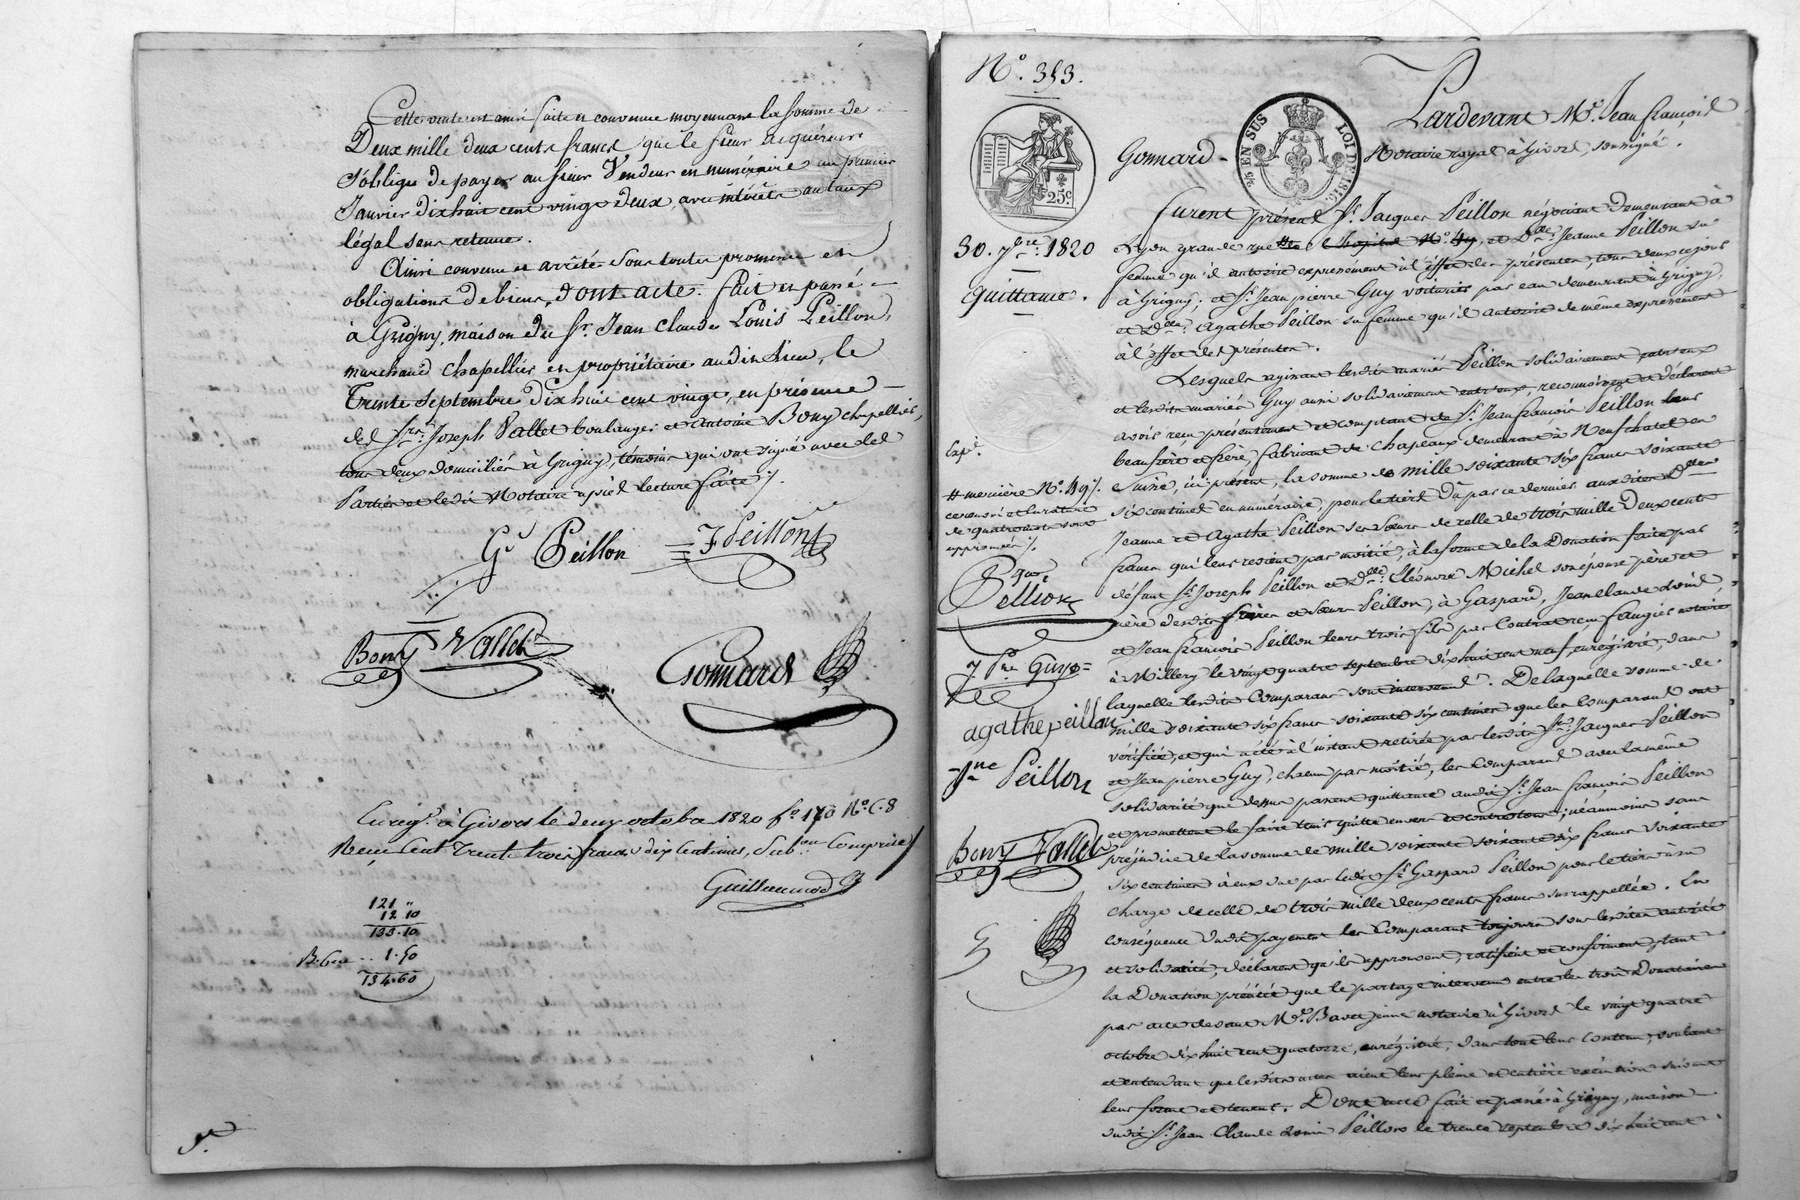 Cette vente est ainsi faite et convenue moyennant la somme de
Deux mille deux cents francs que le sieur acquéreur
s'oblige de payer au sieur Vendeur en numéraire au premier
Janvier dix huit cent vingt deux, avec intérêts au taux
légal sans retenue.
Ainsi convenu et arrêté sous toutes promesses et
obligations de biens, dont acte. fait et passé
à Grigny, maison du Sr. Jean Claude Louis Peillon,
marchand chapellier et propriétaire audit lieu, le
Trente Septembre Dix huit cent vingt, en présence
des Srs. Joseph Vallet boulanger et antoine Bony chapellier,
tous deux domiciliés à Grigny, témoins qui ont signé avec les
Parties et ledit Notaire après lecture faite ./.
Gd Peillon J Peillon
Bony Vallet Gonnard
Enregt. à Givors le deux octobre 1820 fo 170 No C. 8
Reçu Cent Trente trois francs dix Centimes, Subon Comprise
Guillaumod
121 "
12 10
133.10
1.50
134.60
No. 353.
Pardevant Me. Jean françois
Gonnard Notaire royal à Givors, soussigné.
EN SUS LOI DE 1816.
25c
30. 7bre. 1820
quittance.
furent présens Sr. Jacques Peillon négociant demeurant à
Lyon grande rue hôpital No. 44, et Dlle. Jeanne Peillon sa
femme qu'il autorise expressément à l'effet des présentes, tous deux ce jour
à Grigny; et Sr. Jean pierre Guy voiturier par eau demeurant à Grigny,
et Dlle. Agathe Peillon sa femme qu'il autorise de même expressément
à l'effet des présentes.
Lesquels agissant lesdits mariés Peillon solidairement entr'eux
et lesdits mariés Guy aussi solidairement entr'eux, reconnoissent et déclarent
avoir reçu présentement et comptant de Sr. Jean françois Peillon leur
beaufrère et frère, fabricant de chapeaux, demeurant à Neufchatel en
Suisse, ici présent, la somme de mille soixante six francs soixante
six centimes en numéraire, pour le tiers dû par ce dernier auxdites Dlles
Jeanne et Agathe Peillon ses sœurs de celle de trois mille deux cents
francs qui leur revient par moitié, à la forme de la Donation faite par
défunt Sr. Joseph Peillon et Dlle. Eléonore Michel son épouse père et
mère desdits frères et sœurs Peillon, à Gaspard, Jean claude Louis
et Jean françois Peillon leurs trois fils par Contrat reçu faugier notaire
à Millery le vingt quatre septembre dix huit cent neuf, enregistré, dans
laquelle lesdits Comparans sont intervenus. De laquelle somme de
mille soixante six francs soixante six centimes que les Comparans ont
vérifiée, et qui a été à l'instant retirée par lesdits Srs. Jacques Peillon
et Jean pierre Guy, chacun par moitié, les Comparans avec la même
solidarité que dessus passent quittance audit Sr. Jean françois Peillon
et promettent le faire tenir quitte envers et contre tous; néanmoins sans
préjudice de la somme de mille soixante six francs soixante
six centimes à eux due par ledit Sr. Gaspard Peillon pour le tiers à sa
charge de celle de trois mille deux cents francs surrappellée. En
conséquence dudit payement les Comparans toujours sous lesdites autorités
et solidarité, déclarent qu'ils approuvent, ratifient et confirment, tant
la Donation précitée que le partage intervenu entre les trois Donataires
par acte devant Me. Bavet jeune notaire à Givors le vingt quatre
octobre dix huit cent quatorze, enregistré, dans tout leur contenu, voulant
et entendant que lesdits actes aient leur pleine et entière exécution suivant
leur forme et teneur. Dont acte fait et passé à Grigny, maison
dudit Sr. Jean Claude Louis Peillon le trente septembre dix huit cent
Expé.
# mercière No. 49 ./.
approuvés ./.
Jques Peillon
J Pre Guy
agathe peillon
Jne Peillon
Bony Vallet